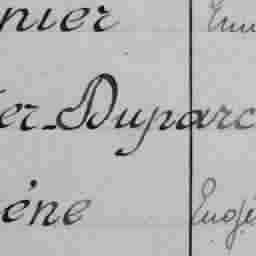 nier
er-Duparc
ène Eugé